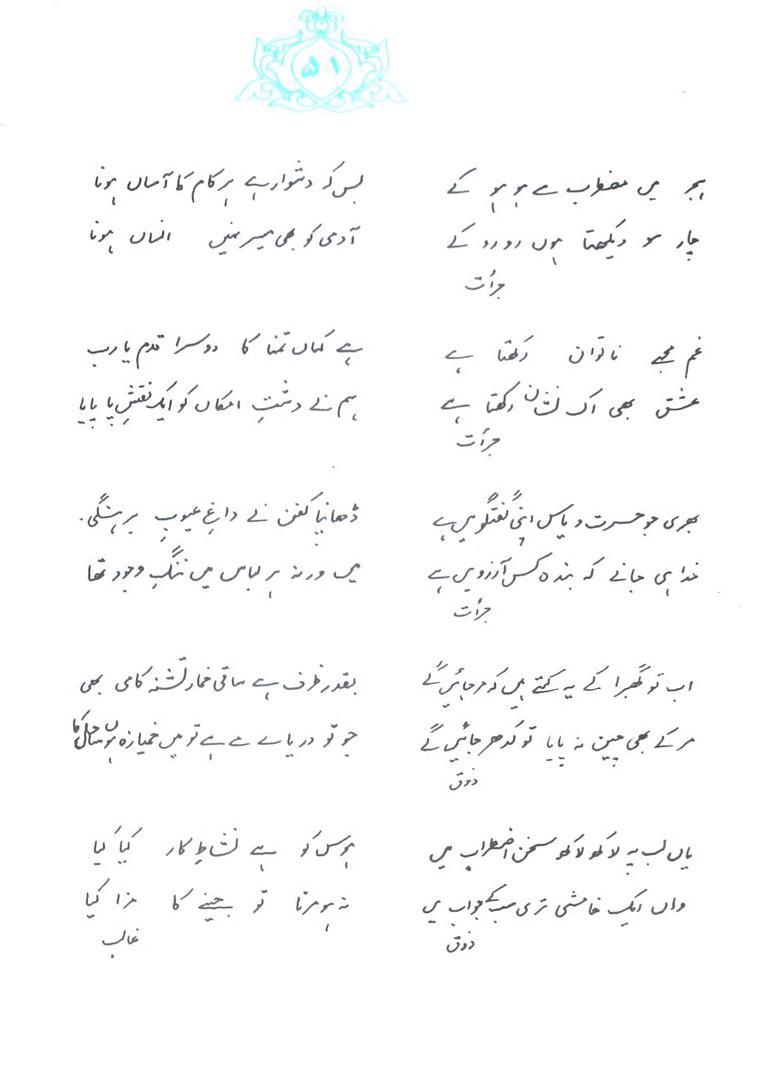 ۵۱
ہجر میں مضطرب سے ہو ہو کے
چار سو دیکھتا ہوں رو رو کے
جرأت
غم مجھے ناتوان رکھتا ہے
عشق بھی اک نشان رکھتا ہے
جرأت
بھری جو حسرت و یاس اپنی گفتگو میں ہے
خدا ہی جانے کہ بندہ کس آرزو میں ہے
جرأت
اب تو گھبرا کے یہ کہتے ہیں کہ مر جائیں گے
مر کے بھی چین نہ پایا تو کدھر جائیں گے
ذوق
یاں لب پہ لاکھ لاکھ سخن اضطراب میں
واں ایک خامشی تری سب کے جواب میں
ذوق
بس کہ دشوار ہے ہر کام کا آساں ہونا
آدمی کو بھی میسر نہیں انساں ہونا
ہے کہاں تمنا کا دوسرا قدم یا رب
ہم نے دشتِ امکاں کو ایک نقشِ پا پایا
ڈھانپا کفن نے داغِ عیوبِ برہنگی
میں ورنہ ہر لباس میں ننگِ وجود تھا
بقدرِ ظرف ہے ساقی خمارِ تشنہ کامی بھی
جو تو دریائے مے ہے تو میں خمیازہ ہوں ساحل کا
ہوس کو ہے نشاطِ کار کیا کیا
نہ ہو مرنا تو جینے کا مزا کیا
غالب